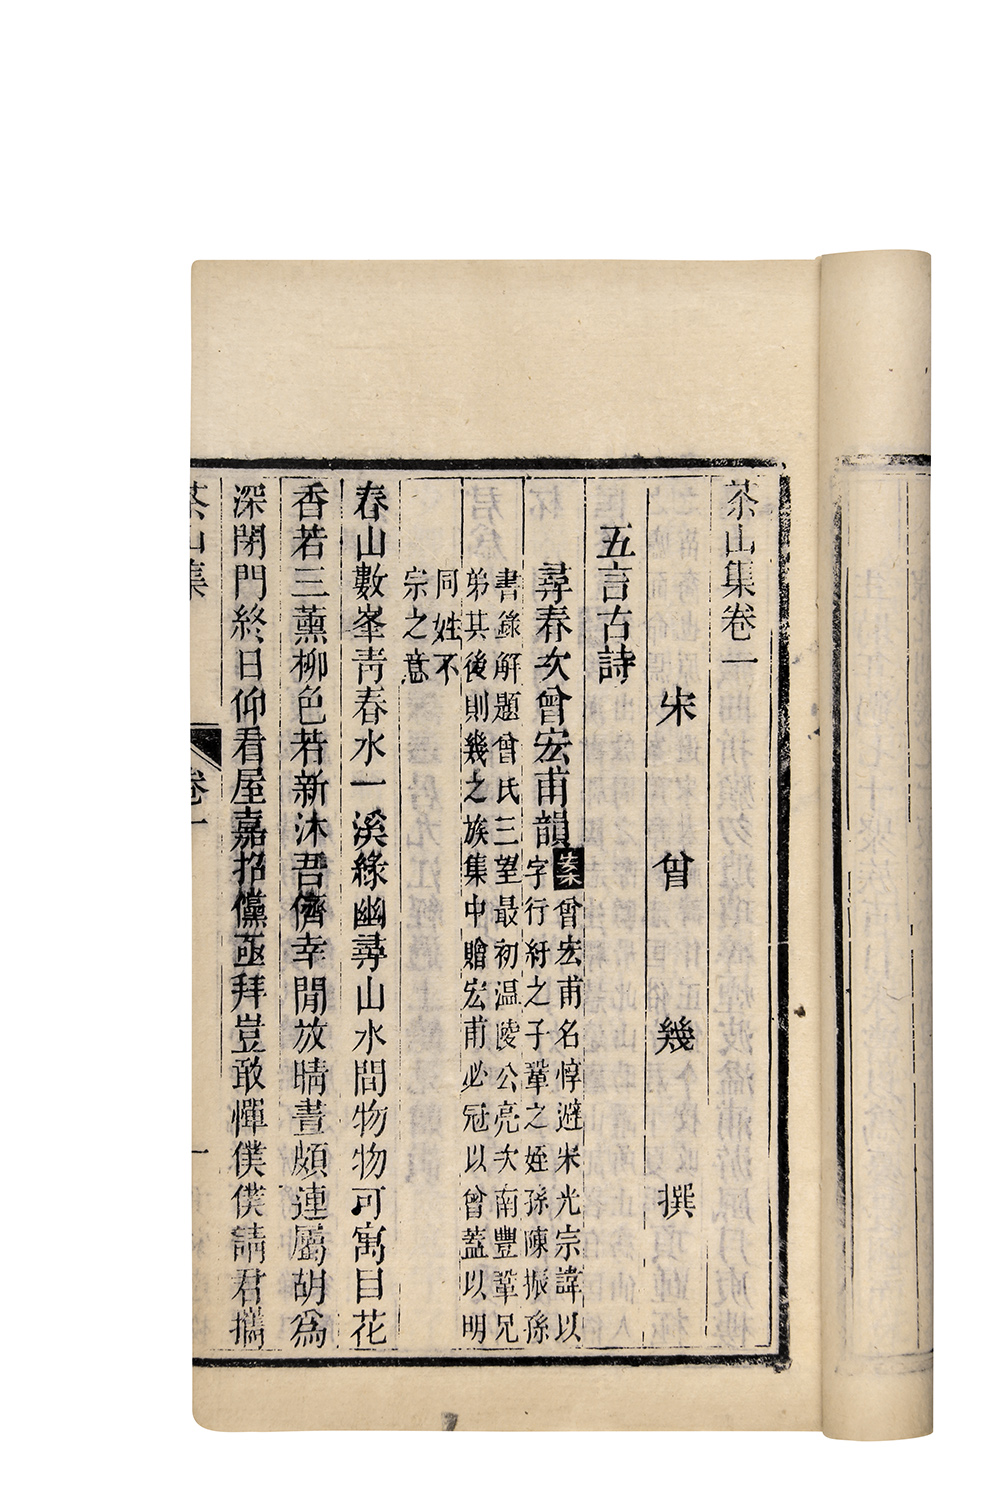 茶山集卷一
宋　曾　幾　撰
五言古詩
尋春次曾宏甫韻案曾宏甫名惇避宋光宗諱以
字行紆之子鞏之姪孫陳振孫
書錄解題曾氏三望最初溫陵公亮次南豐鞏兄
弟其後則幾之族集中贈宏甫必冠以曾蓋以明
同姓不
宗之意
春山數峯靑春水一溪綠幽尋山水間物物可寓目花
香若三薰柳色若新沐吾儕幸閒放晴晝頗連屬胡爲
深閉門終日仰看屋嘉招儻亟拜豈敢憚僕僕請君攜
茶山集　卷一　一